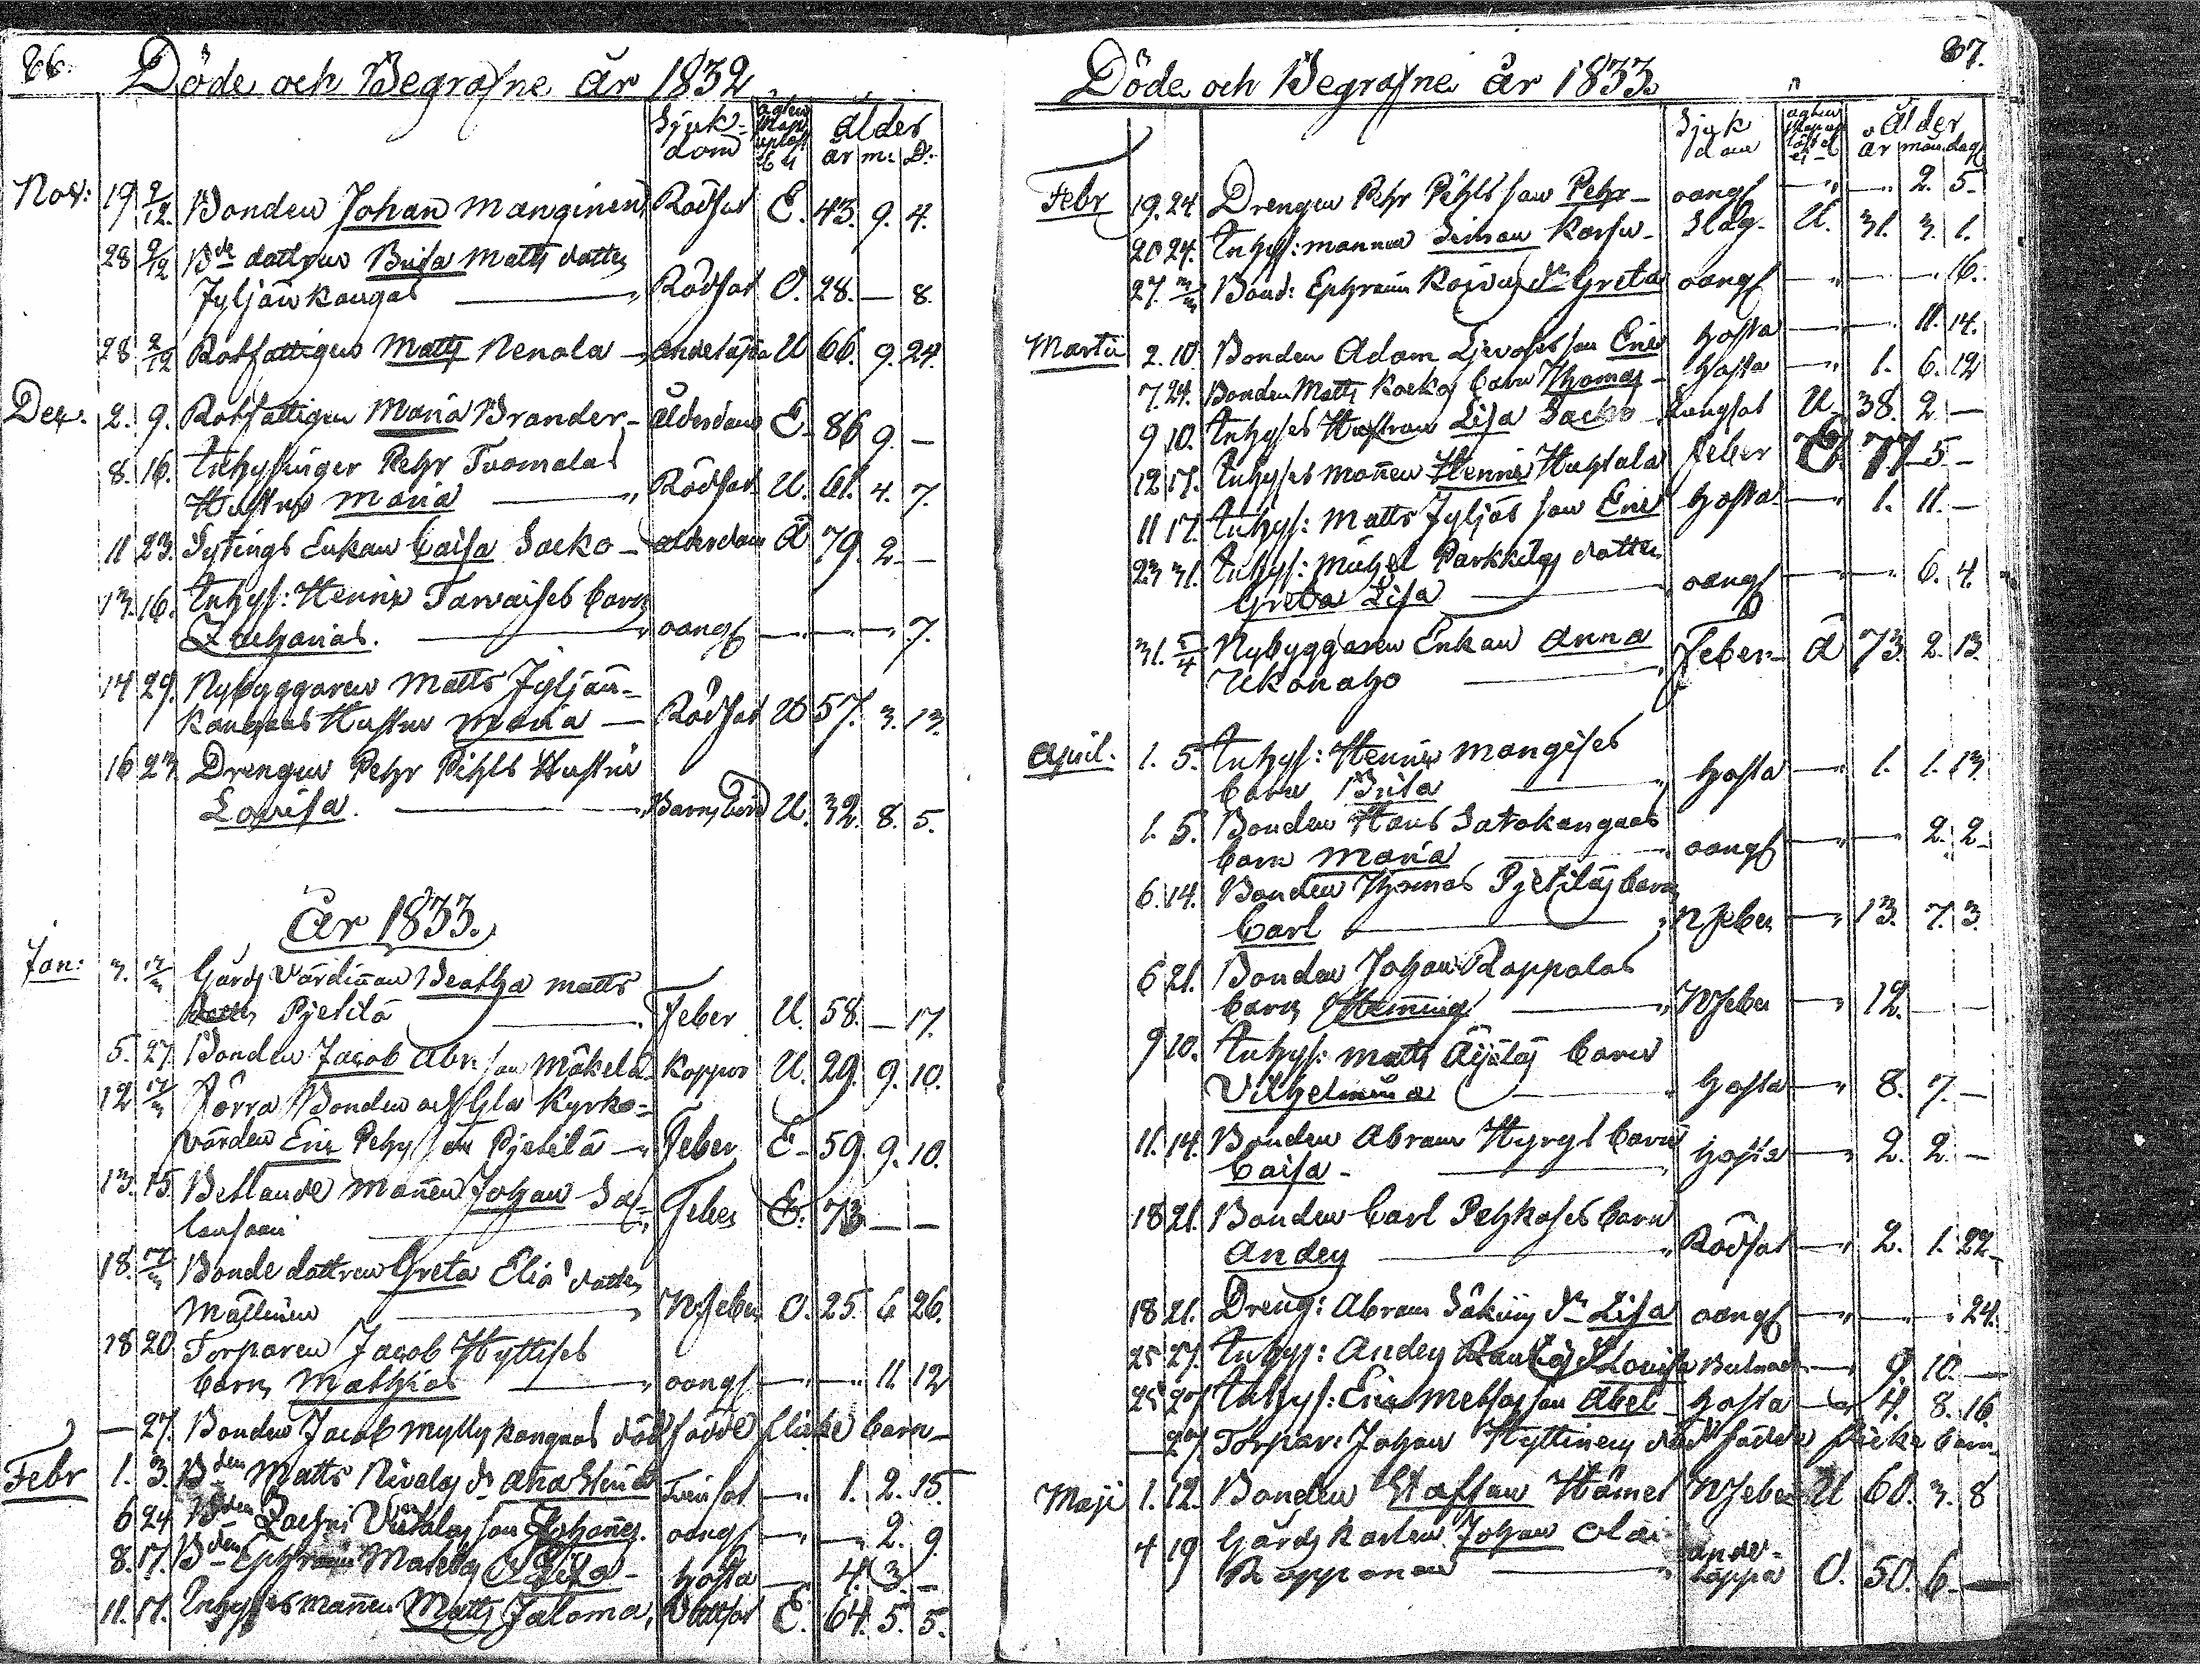 86.
Döde och Begrafne år 1832
Sjuk-
dom
ålder
år m: D:
Nov: 19 2/12. Bonden Johan Manginen Rödsot E. 43. 9. 4.
28 9/12 Bde dottren Brita Matts dotter
Jyljänkangas — Rödsot O. 28. — 8.
28 2/12 Rotfattigen Matts Nenola — U 66. 9. 24.
Dec. 2. 9. Rotfattigen Maria Brander — ålderdom E. 86 9. —
8. 16. Inhysinger Pehr Tuomalas
Hustru Maria — Rödsot U. 61. 4. 7.
11 23. Sytings Enkan Caisa Sacko — ålderdom Ä 79. 2. —
13. 16. Inhys: Henric Tarvaises barn
Zacharias. — oangf — — — 7.
14 29. Nybyggaren Matts Jyljän-
kangaas Hustru Maria — Rödsot U 57. 3. 13.
16 23 Drengen Pehr Pihls Hustru
Lovisa. — Barnsbörd U. 32. 8. 5.
År 1833.
Jan: 3. Gårds Värdinnan Beatha Matts
dotter Pjetilä — Feber U. 58. — 17.
5. 27. Bonden Jacob Abr. son Mäkelä Koppor U. 29. 9. 10.
12 Förra Bonden och Gla Kyrko-
värden Eric Pehrs son Pjetilä — Feber E — 59 9. 10.
13. 15. Betlande mannen Johan
— Feber E. 73 — —
18. Bonde dottren Greta Elia dotter
Mattinen — N. Feber O. 25. 6 26.
18 20. Torparen Jacob Hyttises
barn Mathias — oangf — — 11 12
— 27. Bonden Jacob Myllykangaas dödfödde flicke barn —
Febr 1. 3. Bden Matts Nivalas dr Anna Stina — 1. 2. 15.
6 24 Bden Zachri son Johannes. oangf — — 2. 9.
8. 17. Bden Ephraim Hosta — 4. 3. —
11. 17. Inhysesmannen Matts Jaloma, E. 64. 5. 5.
87.
Döde och Begrafne år 1833.
Sjuk
dom
Ålder
år mån. dag
Febr 19. 24. Drengen Pehr Pihls son Pehr — oangf — — 2. 5.
20 24. Inhys: mannen Simon — Slag. U. 31. 3. 1.
27. Bond: Ephraim dr Greta oangf — — — 16.
Martii 2. 10. Bonden Adam son Eric Hosta — — 11. 14.
7. 24. Bonden Matts barn Thomas — Hosta — 1. 6. 12
9 10. Inhyses Hustrun Lisa Sacko — Lungsot U. 38. 2 —
12 17. Inhyses mannen Henric Huhtala Feber E. 77 5 —
11 17. Inhys: Matts Jyljäs son Eric Hosta — 1. 11. —
23 31. Inhys: Michel Parkkilas dotter
Greta Lisa — oangf — — 6. 4.
31. 5/4 Nybyggaren Enkan Anna
Ukonaho — Feber — Ä 73. 2. 13.
April. 1. 5. Inhys: Henric Mangises
barn Brita — Hosta — 1. 1. 13
1. 5. Bonden Hans Satokangaas
barn Maria — oangf — — 2. 2.
6. 14. Bonden Thomas Pjetiläs barn
Carl — N Feber — 13. 7. 3.
6 21. Bonden Johan Rappalas
barn Henning — N Feber — 12. — —
9 10. Inhys: Matts Äijäläs barn
Vilhelmina — Hosta — 8. 7. —
11. 14. Bonden Abram Hyrys barn
Caisa — Hosta — 2. 2. —
18 21. Bonden Carl Pehkoses barn
Anders — Rödsot — 2. 1. 22 —
18 21. Dreng: Abram dr Lisa oangf — — — 24.
25 27. Inhys: Anders dr Lovisa — 9. 10. —
25 27 Inhys: Eric Metsos son Abel — Hosta — 4. 8. 16.
— 27 Torpar: Johan Hyttinens dödfödde flicke barn
Maji 1. 12. Bonden Staffan N Feber U 60. 3. 8
4 19 Gårds karlen Johan Olai
Rapponen — O. 50. 6. —